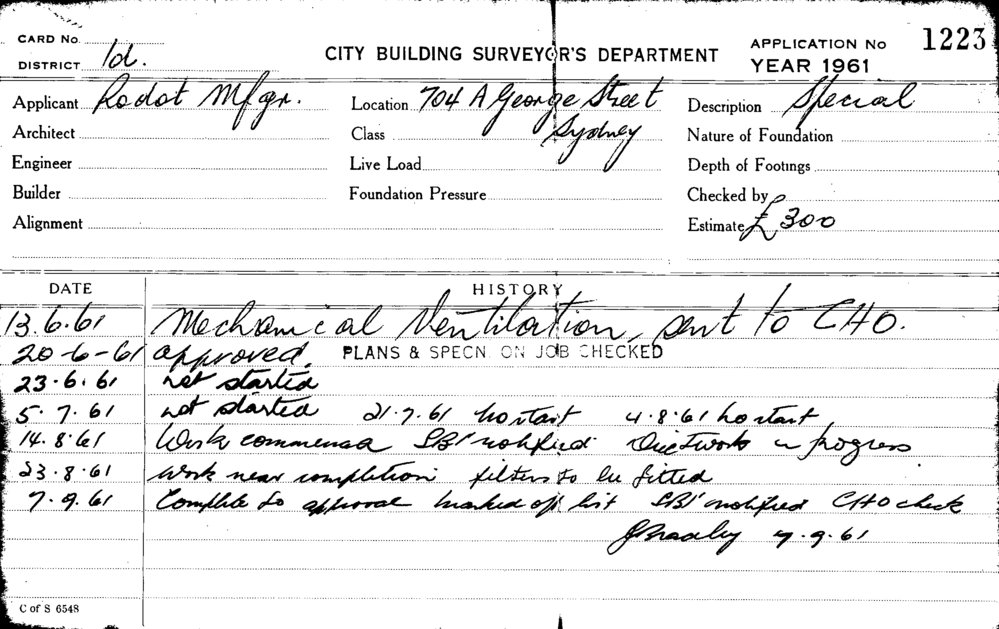 CARD No.
CITY BUILDING SURVEYOR'S DEPARTMENT
APPLICATION No 1223
DISTRICT 1d.
YEAR 1961
Applicant Rodot Mfgr. Location 704 A George Street Description Special
Architect Class Sydney Nature of Foundation
Engineer Live Load Depth of Footings
Builder Foundation Pressure Checked by
Alignment Estimate £300
DATE HISTORY
13.6.61 Mechanical Ventilation, sent to CHO.
20-6-61 approved. PLANS & SPECN. ON JOB CHECKED
23.6.61 not started
5.7.61 not started 21.7.61 no start 4.8.61 no start
14.8.61 Work commenced SBI notified Ductwork in progress
23.8.61 work near completion filters to be fitted
7.9.61 Complete to approval marked off list SBI notified CHO check
7.9.61
C of S 6548